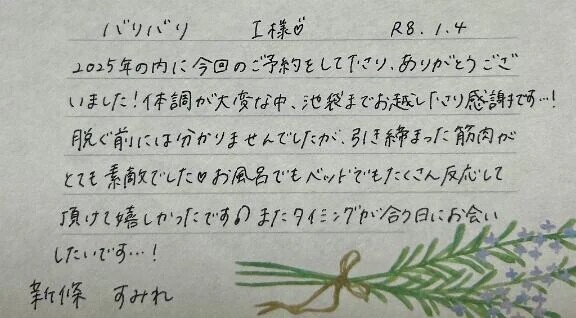 バリバリ I様♡ R8.1.4
2025年の内に今回のご予約をして下さり、ありがとうござ
いました!体調が大変な中、池袋までお越し下さり感謝です…!
脱ぐ前には分かりませんでしたが、引き締まった筋肉が
とても素敵でした♡お風呂でもベッドでもたくさん反応して
頂けて嬉しかったです♪またタイミングが合う日にお会い
したいです…!
新條 すみれ